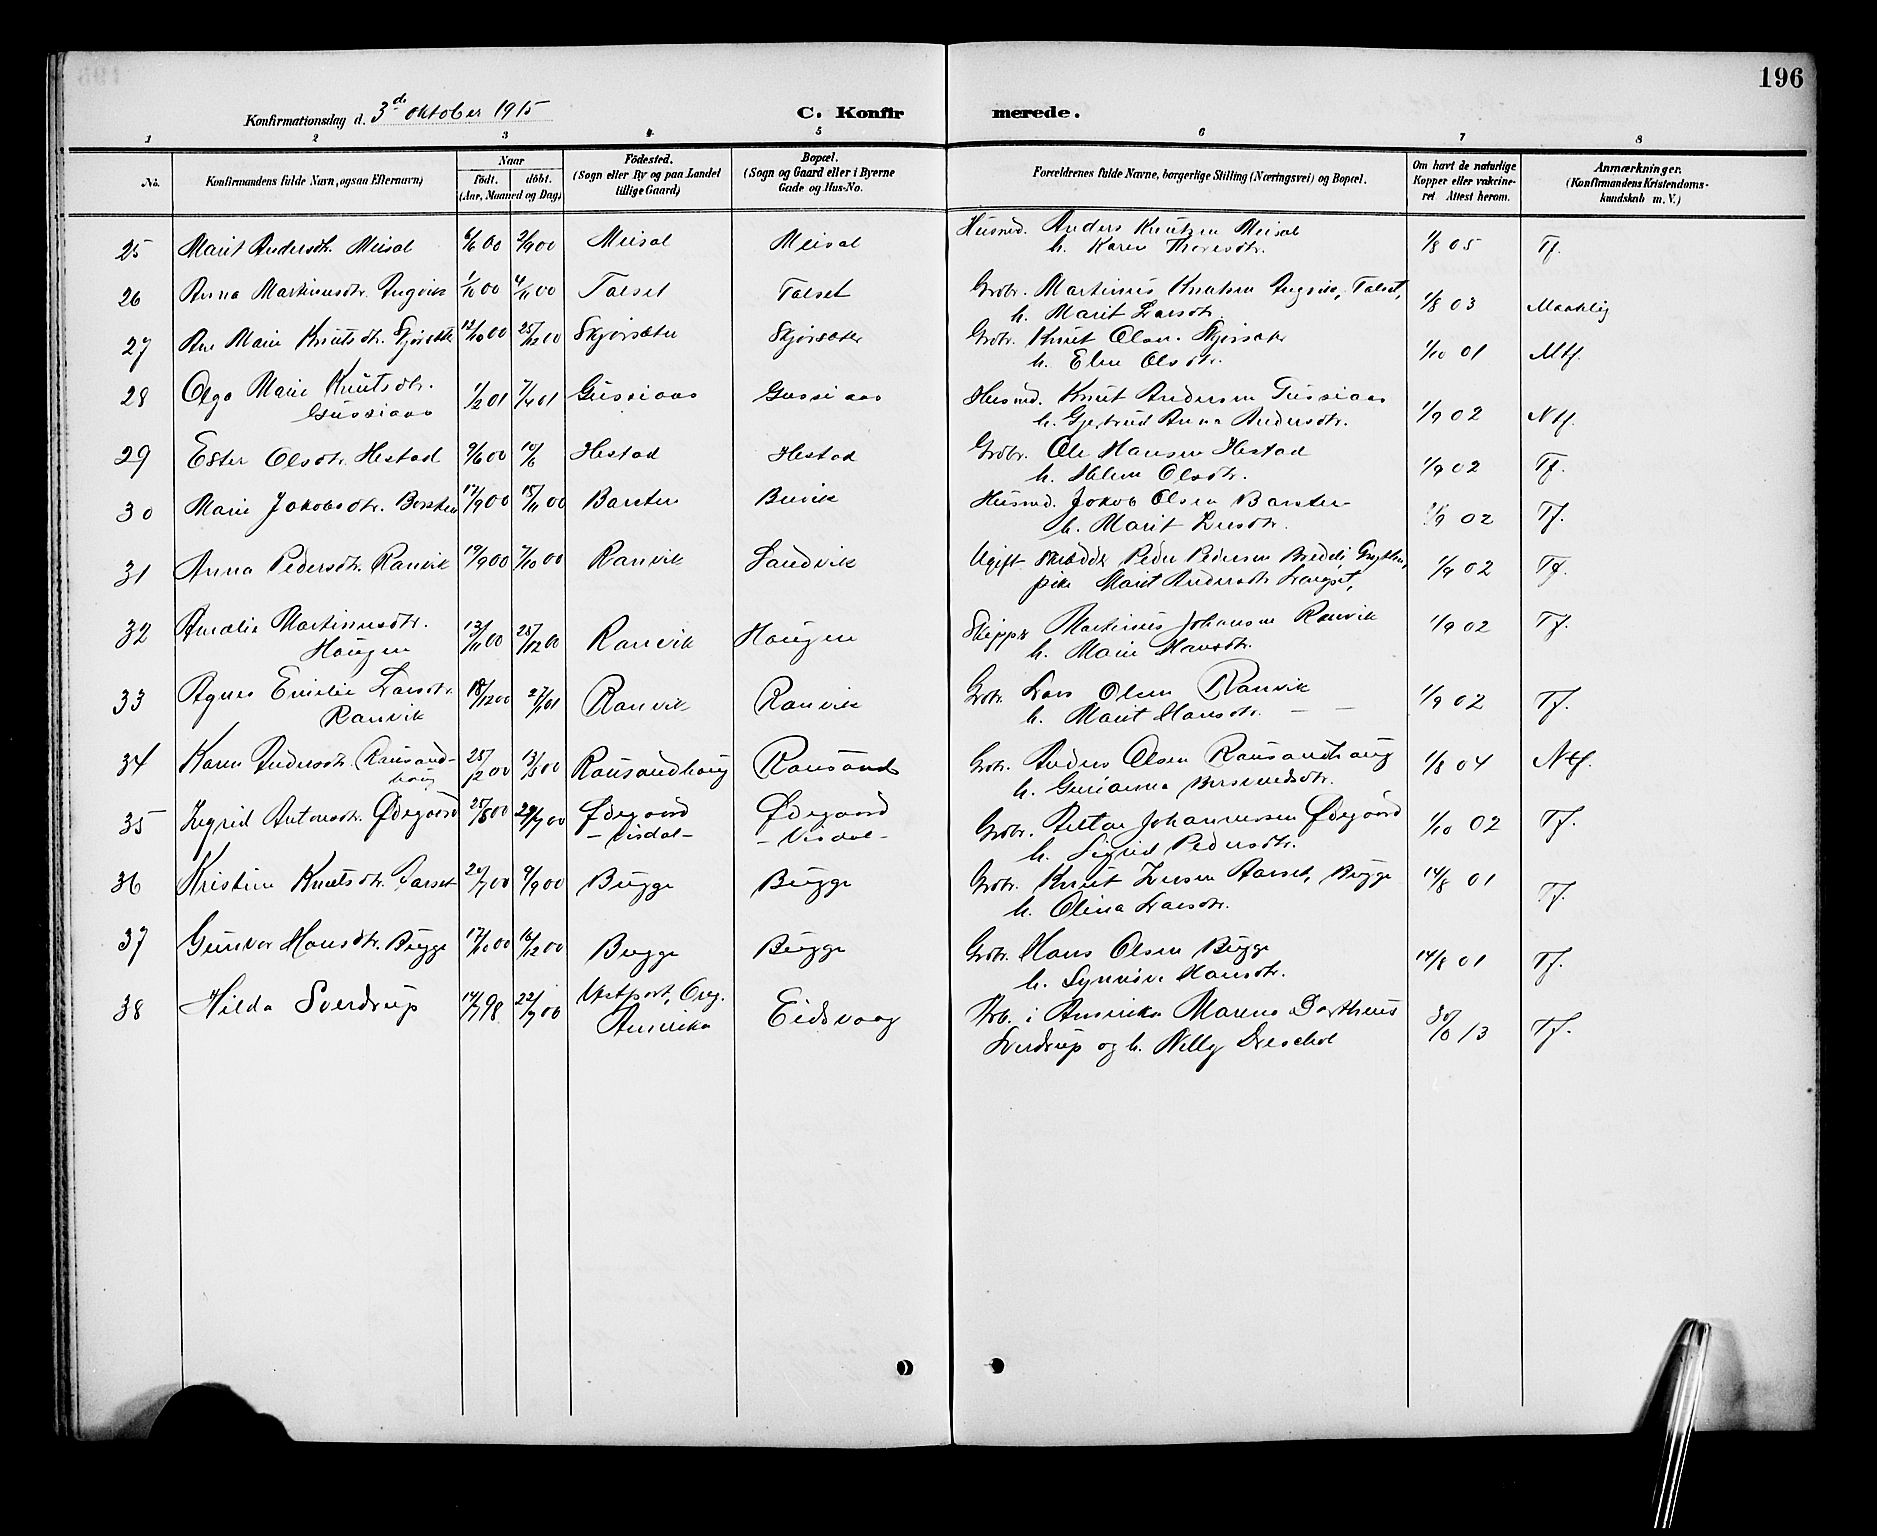 196
Konfirmationsdag d. 3d. oktober 1915
C. Konfirmerede.
1 2 3 4 5 6 7 8
No. Konfirmandens fulde Navn, ogsaa Efternavn) Naar Födt. döbt. (Aar, Maaned og Dag) Födested. (Sogn eller By og paa Landet tillige Gaard) Bopæl. (Sogn og Gaard eller i Byerne Gade og Hus-No. Forældrenes fulde Navne, borgerlige Stilling (Næringsvei) og Bopæl. Om havt de naturlige Kopper eller vakcineret Attest herom. Anmærkninger. (Konfirmandens Kristendomskundskab m. V.)
25 Marit Andersdtr. Meisal 6/6 00 2/9 00 Meisal Meisal Husmd. Anders Knutsen Meisal 1/8 05 Tf.
h. Karen Theresdtr.
26 Anna Martinusdtr. Ingvik 1/10 00 4/11 00 Talset Talset Grdbr. Martinus Knutsen Ingvik, Talset, 1/8 03 Maadelig
h. Marit Larsdtr.
27 Ane Marie Knutsdtr. Skjørsæter 12/10 00 25/12 00 Skjørsæter Skjørsæter Grdbr. Knut Olsen Skjørsæter 1/10 01 Mtf.
h. Elen Olsdtr.
28 Olga Marie Knutsdtr. 1/2 01 7/4 01 Gussiaas Gussiaas Husmd. Knut Andersen Gussiaas 1/9 02 Ntf.
Gussiaas h. Gjertrud Anna Andersdtr.
29 Ester Olsdtr. Hestad 9/6 00 10/6 Hestad Hestad Grdbr. Ole Hansen Hestad 1/9 02 Tf.
h. Malene Olsdtr.
30 Marie Jakobsdtr. Barsten 17/9 00 18/11 00 Barsten Buvik Husmd. Jakob Olsen Barsten 1/9 02 Tf.
h. Marit Larsdtr.
31 Anna Pedersdtr. Ranvik 19/9 00 7/10 00 Ranvik Sandvik Ugift skrædder Peder Pedersen 1/9 02 Tf.
pike Marit Andersdtr. Langset,
32 Amalie Martinusdtr. 13/11 00 28/12 00 Ranvik Haugen Skipper Martinus Johansen Ranvik 1/9 02 Tf.
Haugen h. Marie Hansdtr.
33 Agnes Emelie Larsdtr. 18/12 00 27/1 01 Ranvik Ranvik Grdbr. Lars Olsen Ranvik 1/9 02 Tf.
Ranvik h. Marit Hansdtr. — —
34 Karen Andersdtr. Rausand- 25/12 00 13/3 00 Rausandhaug Rausand Grdbr. Anders Olsen Rausandhaug 1/8 04 Ntf.
haug h. Gurianna
35 Ingrid Antonsdtr. Ødegaard 25/8 00 29/7 00 Ødegaard Ødegaard Grdbr. Anton Johannessen Ødegaard 1/10 02 Tf.
- Visdal - - Visdal - h. Sigrid Pedersdtr.
36 Kristine Knutsdtr. Aarset 20/7 00 9/9 00 Bugge Bugge Grdbr. Knut Larsen Aarset, Bugge 14/8 01 Tf.
h. Olina Larsdtr.
37 Gunvor Hansdtr. Bugge 17/10 00 16/12 00 Bugge Bugge Grdbr. Hans Olsen Bugge 14/8 01 Tf.
h. Synnøve Hansdtr.
38 Hilda Sverdrup 14/7 98 22/7 00 Vestport, Oreg. Eidsvaag Arb. i Amerika Marens Dortheus 30/6 13 Tf.
Amerika Sverdrup og h. Nelly Dreschel